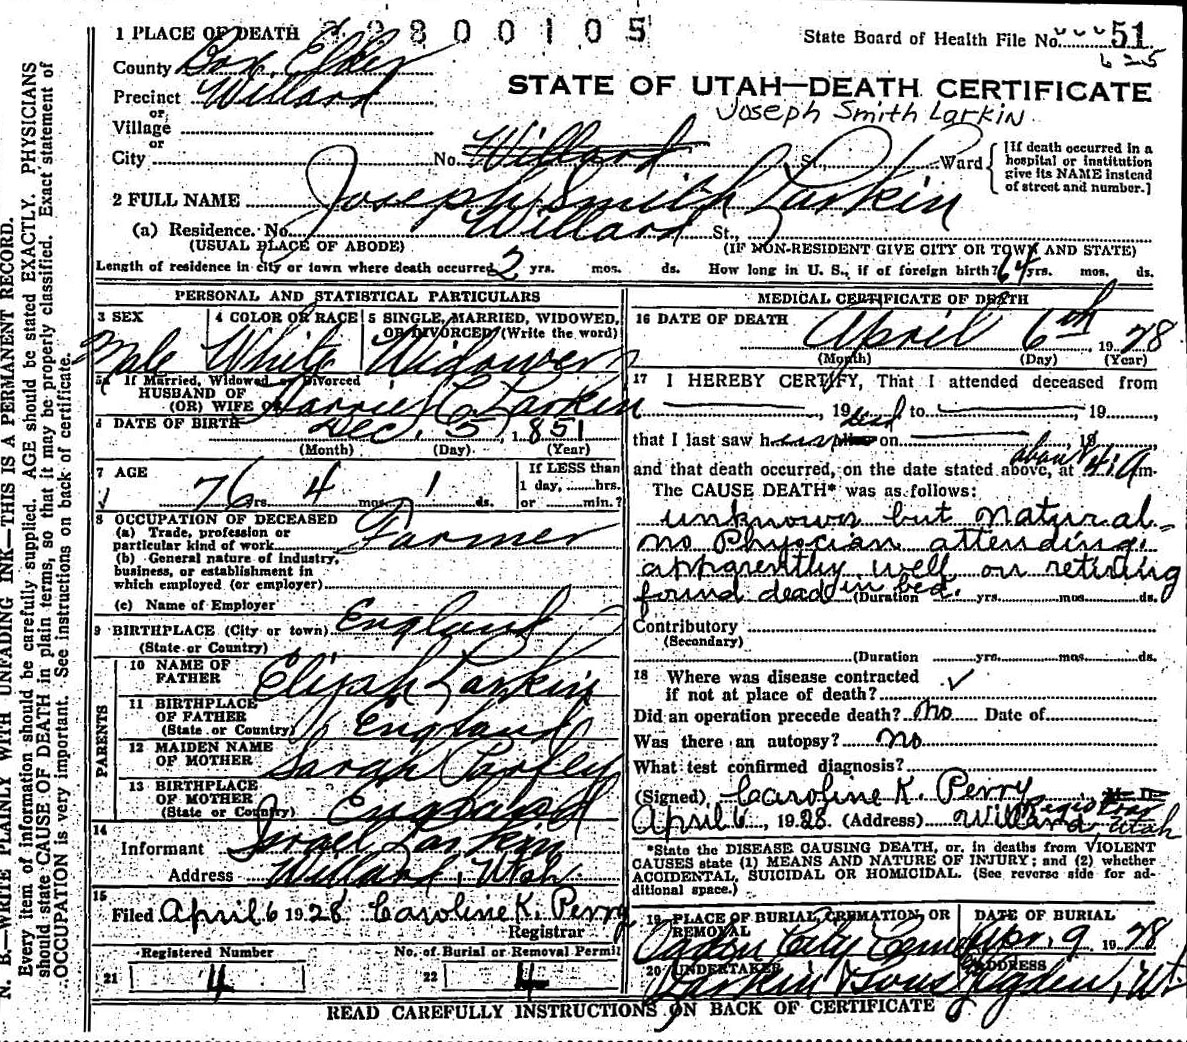 2800105
State Board of Health File No. 51
625
1 PLACE OF DEATH
County Box Elder
STATE OF UTAH—DEATH CERTIFICATE
Precinct Willard
Joseph Smith Larkin
or
Village
or
City No. Willard St., Ward
[If death occurred in a hospital or institution give its NAME instead of street and number.]
2 FULL NAME Joseph Smith Larkin
(a) Residence. No. Willard St.,
(USUAL PLACE OF ABODE) (IF NON-RESIDENT GIVE CITY OR TOWN AND STATE)
Length of residence in city or town where death occurred 2 yrs. mos. ds. How long in U. S., if of foreign birth? 64 yrs. mos. ds.
PERSONAL AND STATISTICAL PARTICULARS
3 SEX 4 COLOR OR RACE 5 SINGLE, MARRIED, WIDOWED,
OR DIVORCED (Write the word)
Male White Widower
5a If Married, Widowed or Divorced
HUSBAND OF
(OR) WIFE OF Harriet C Larkin
DATE OF BIRTH Dec. 5, 1851
(Month) (Day) (Year)
7 AGE If LESS than
1 day, hrs.
76 yrs. 4 mos. 1 ds. or min.?
8 OCCUPATION OF DECEASED
(a) Trade, profession or
particular kind of work Farmer
(b) General nature of industry,
business, or establishment in
which employed (or employer)
(c) Name of Employer
9 BIRTHPLACE (City or town) England
(State or Country)
PARENTS
10 NAME OF
FATHER Elijah Larkin
11 BIRTHPLACE
OF FATHER
(State or Country) England
12 MAIDEN NAME
OF MOTHER Sarah Parfey
13 BIRTHPLACE
OF MOTHER
(State or Country) England
14
Informant Israel Larkin
Address Willard, Utah
15
Filed April 6 1928 Caroline K. Perry
Registrar
Registered Number No. of Burial or Removal Permit
21 4 22 4
MEDICAL CERTIFICATE OF DEATH
16 DATE OF DEATH April 6th 1928
(Month) (Day) (Year)
17 I HEREBY CERTIFY, That I attended deceased from
, 19 to , 19 ,
dead
that I last saw h on , 19
about
and that death occurred, on the date stated above, at 4 A m.
The CAUSE DEATH* was as follows:
unknown but natural-
no Physcian attending.
apparently well on retiring
found dead in bed. (Duration yrs. mos. ds.
Contributory
(Secondary)
(Duration yrs. mos. ds.
18 Where was disease contracted
if not at place of death? ✓
Did an operation precede death? No Date of
Was there an autopsy? no
What test confirmed diagnosis?
(Signed) Caroline K. Perry M. D.
Registrar
April 6, 1928 (Address) Willard, Utah
*State the DISEASE CAUSING DEATH, or, in deaths from VIOLENT
CAUSES state (1) MEANS AND NATURE OF INJURY; and (2) whether
ACCIDENTAL, SUICIDAL OR HOMICIDAL. (See reverse side for ad-
ditional space.)
19 PLACE OF BURIAL, CREMATION, OR DATE OF BURIAL
REMOVAL
Ogden City Cem Apr. 9 1928
20 UNDERTAKER ADDRESS
Larkin & Sons Ogden, Ut
READ CAREFULLY INSTRUCTIONS ON BACK OF CERTIFICATE
N. B.—WRITE PLAINLY WITH UNFADING INK—THIS IS A PERMANENT RECORD.
Every item of information should be carefully supplied. AGE should be stated EXACTLY. PHYSICIANS
should state CAUSE OF DEATH in plain terms, so that it may be properly classified. Exact statement of
OCCUPATION is very important. See instructions on back of certificate.